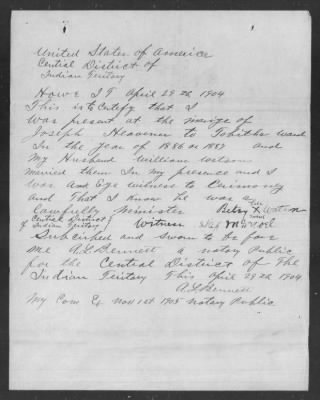 United States of America
Central District of
Indian Teritory
Howe I T April 29th 1904
This is to Certify that I
was present at the marige of
Joseph Heavener to Tobitha Ward
In the year of 1886 or 1887 and
My Husband William Watson
maried them In my presence and I
was and Eye witness to Cerimony
and That I know he was a
Lawfully Minister Betsy X Watson
her
mark
Central District
of Indian Teritory
Witness
Subcribed and sworn to be for
me A.L. Bennett a notary Public
for the Central District of The
Indian Teritory This April 29th 1904
A.L. Bennett
My Com Ex Nov 1st 1905 notary Public